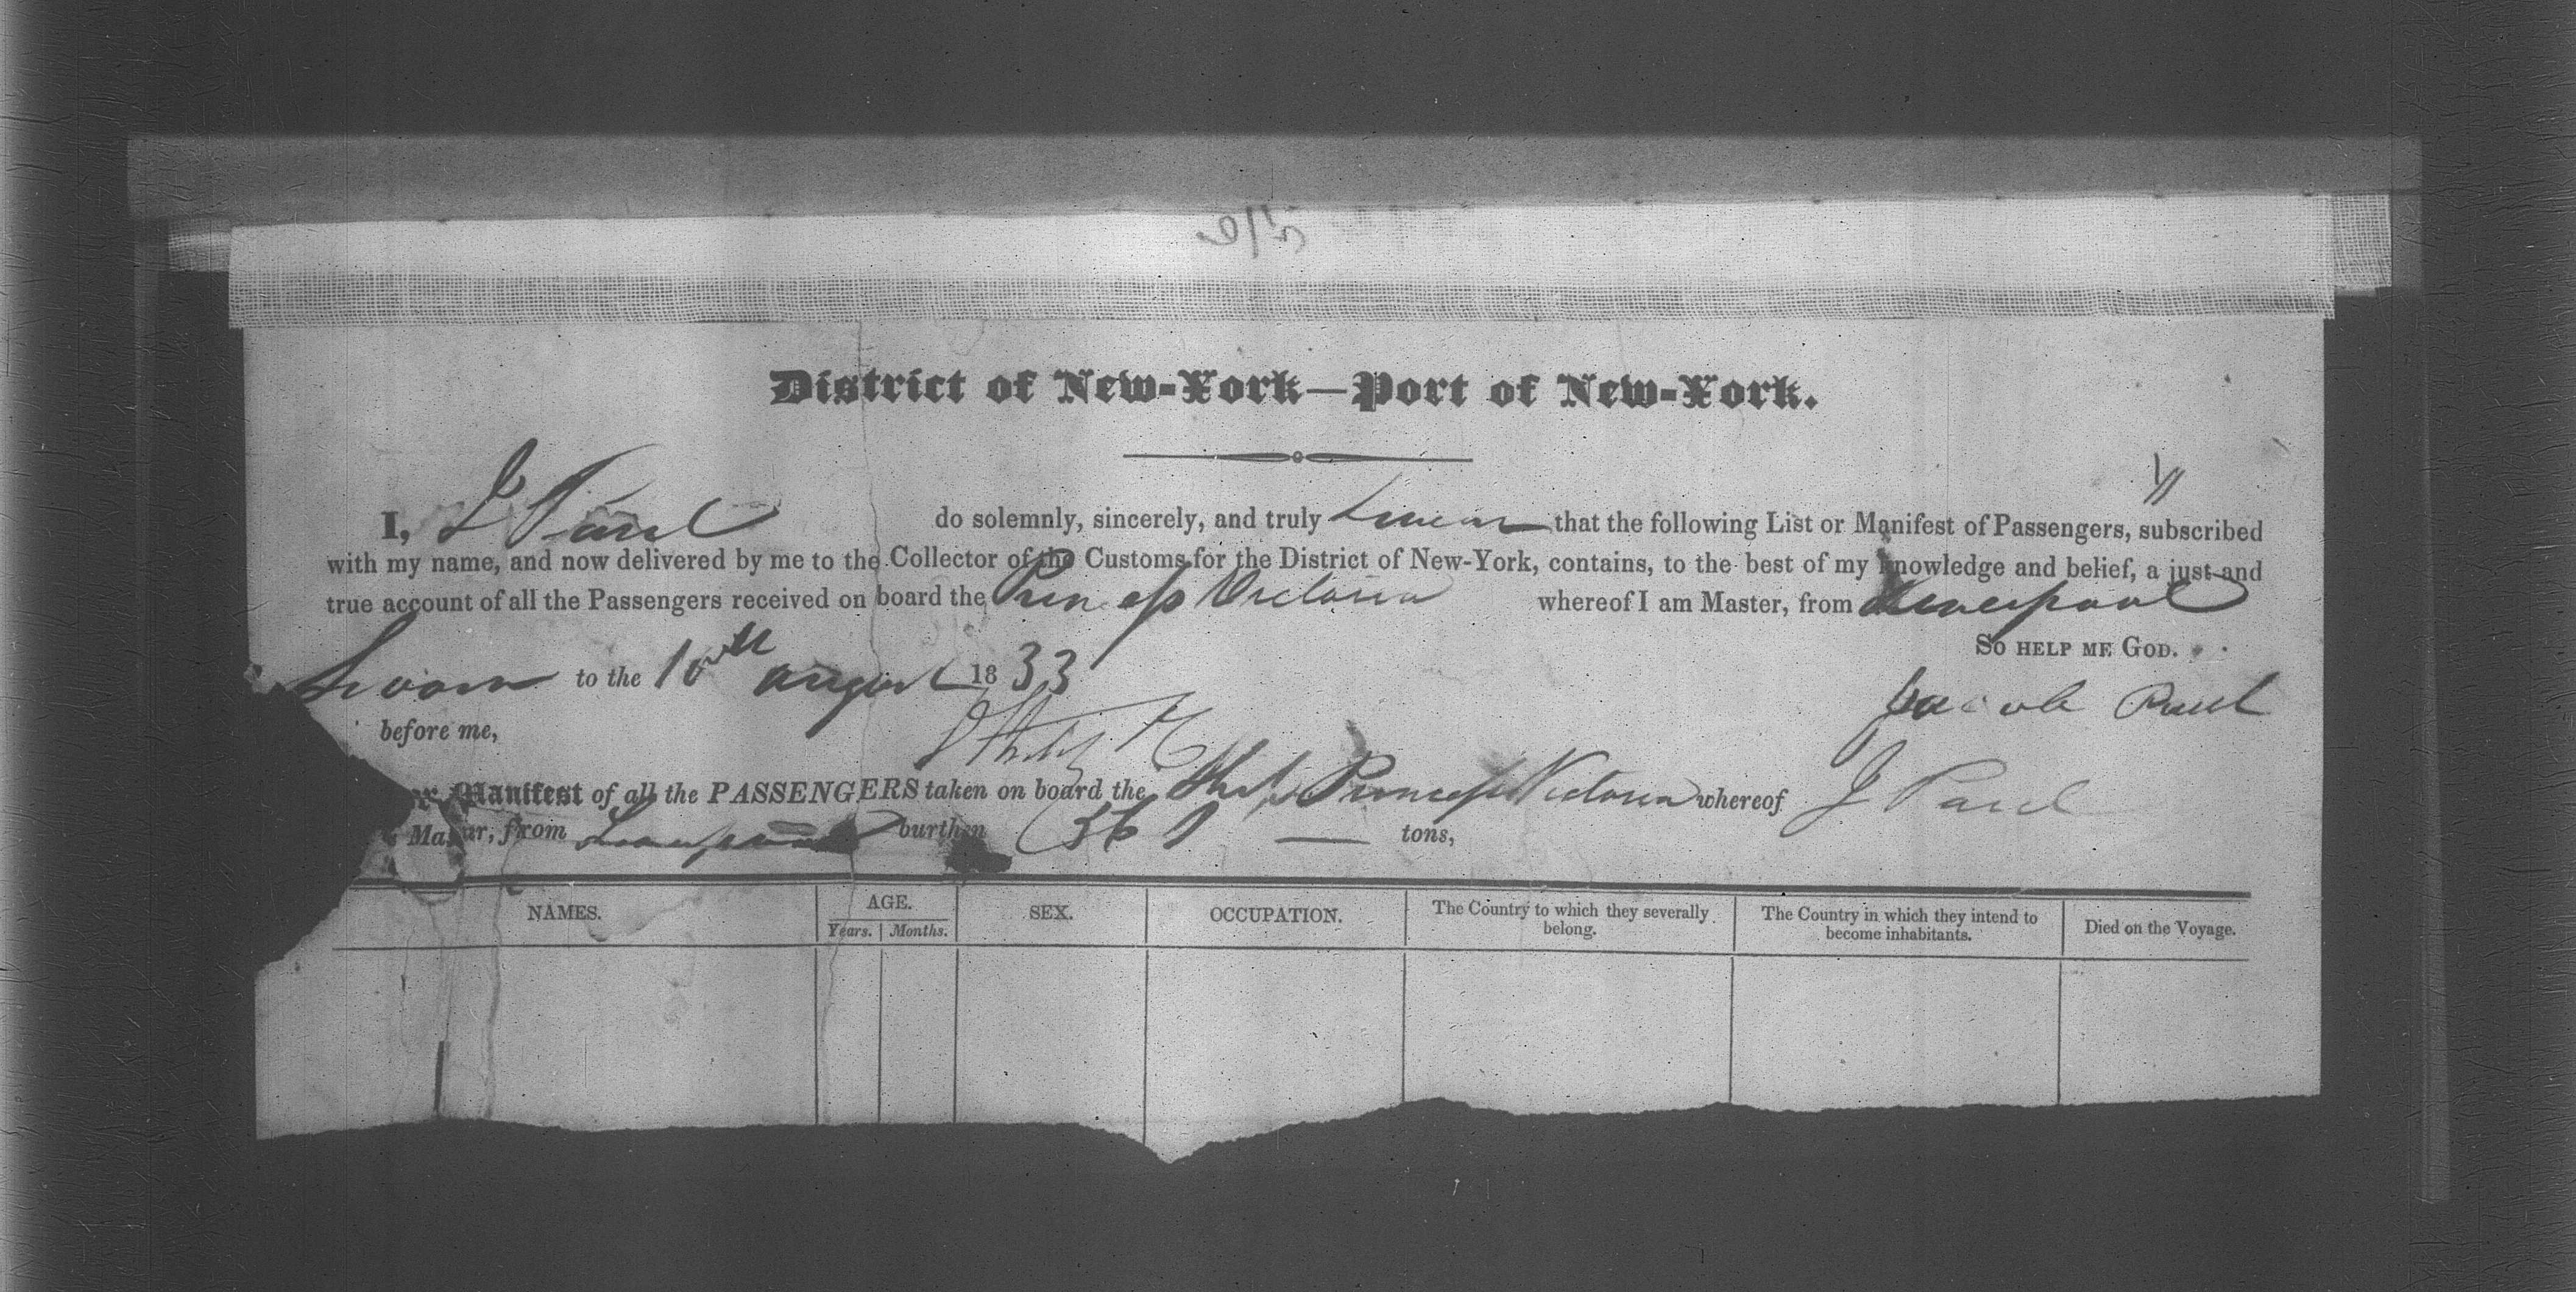 District of New-York—Port of New-York.
I, J Paul do solemnly, sincerely, and truly Swear that the following List or Manifest of Passengers, subscribed
with my name, and now delivered by me to the Collector of the Customs for the District of New-York, contains, to the best of my knowledge and belief, a just and
true account of all the Passengers received on board the Princess Victoria whereof I am Master, from Liverpool
So help me God.
Sworn to the 10th august 1833
Jacob Paul
before me,
or Manifest of all the PASSENGERS taken on board the Ship Princess Victoria whereof J Paul
Master, from Liverpool burthen 361 — tons,
NAMES. AGE. SEX. OCCUPATION. The Country to which they severally belong. The Country in which they intend to become inhabitants. Died on the Voyage.
Years. Months.